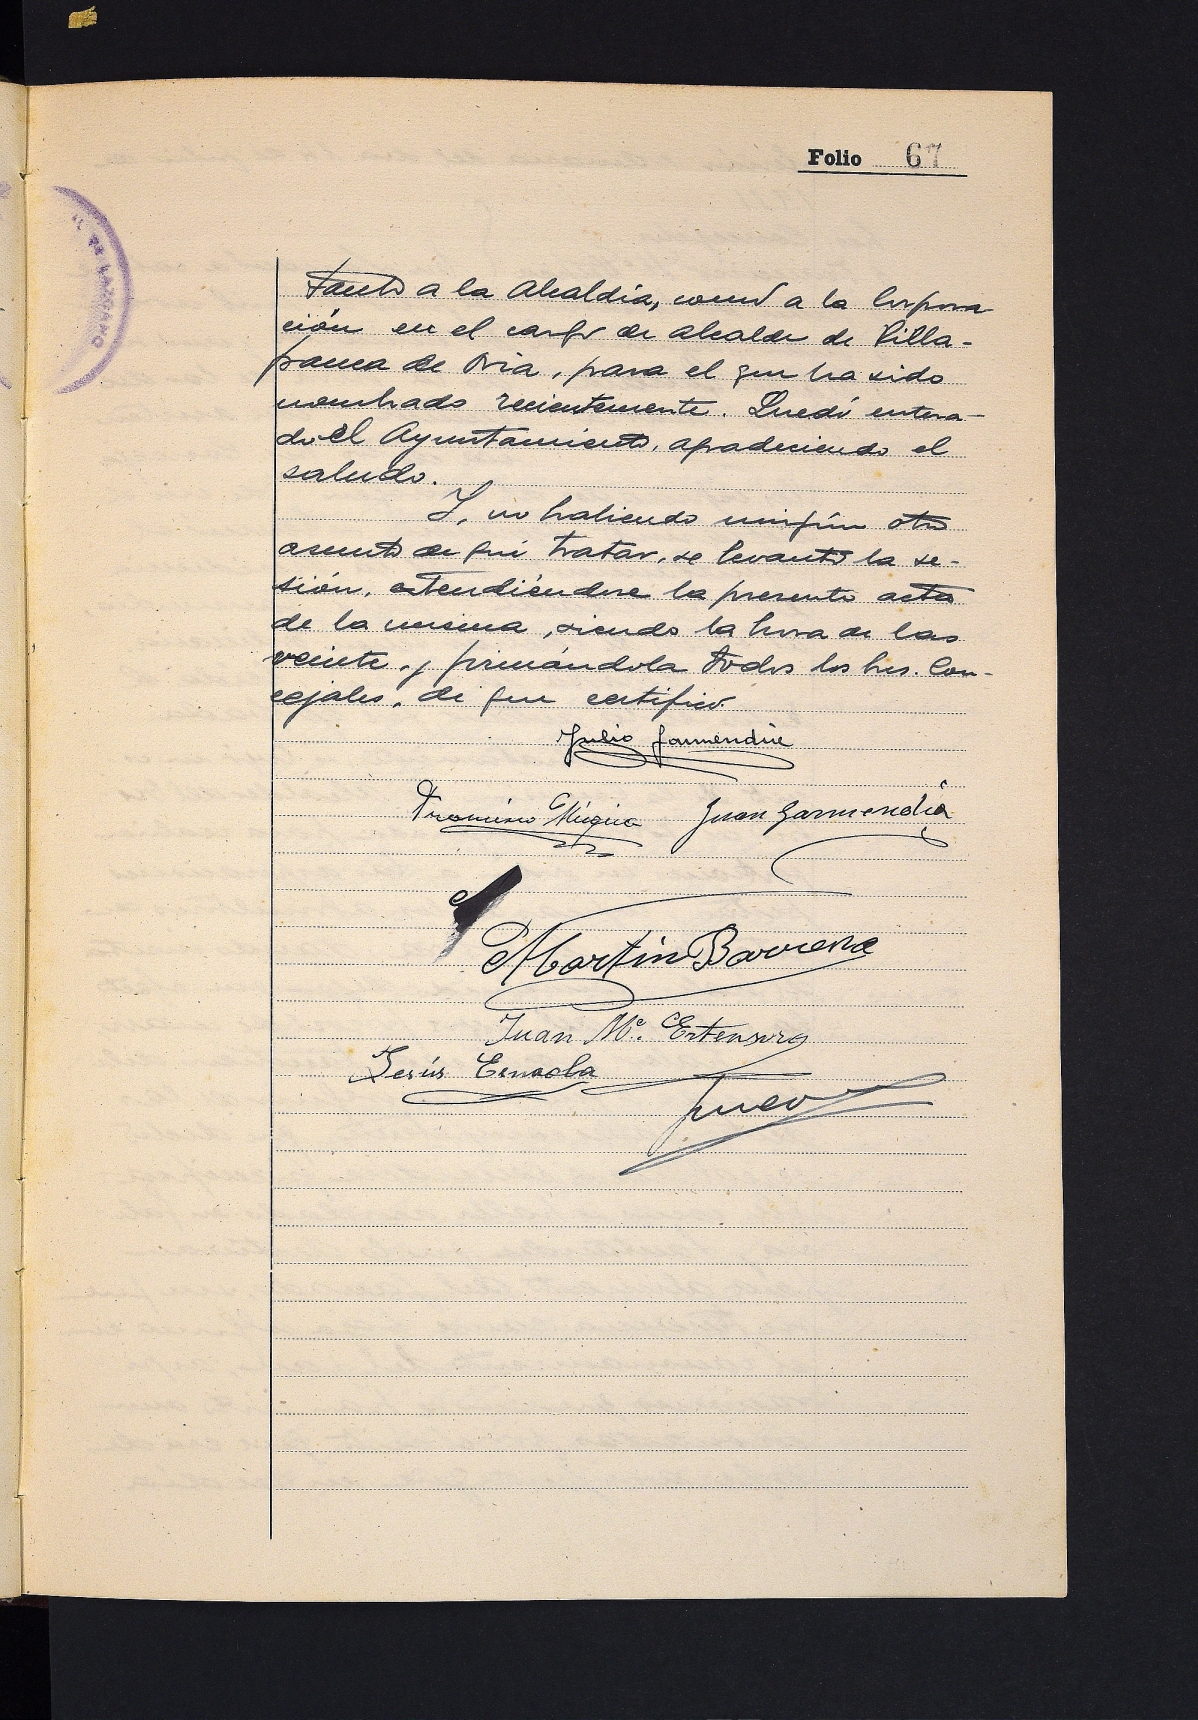 Folio 67
tanto a la Alcaldía, como a la Corpora
ción en el cargo de alcalde de Villa-
franca de Oria, para el que ha sido
nombrado recientemente. Quedó entera-
do el Ayuntamiento, agradeciendo el
saludo.
Y, no habiendo ningún otro
asunto de qué tratar, se levantó la se-
sión, extendiéndose la presente acta
de la misma, siendo la hora de las
veinte, y firmándola todos los Srs. Con-
cejales, de que certifico
Julio Garmendia
Francisco Múgica Juan Garmendia
Martin Barrena
Juan Mª.
Jesús